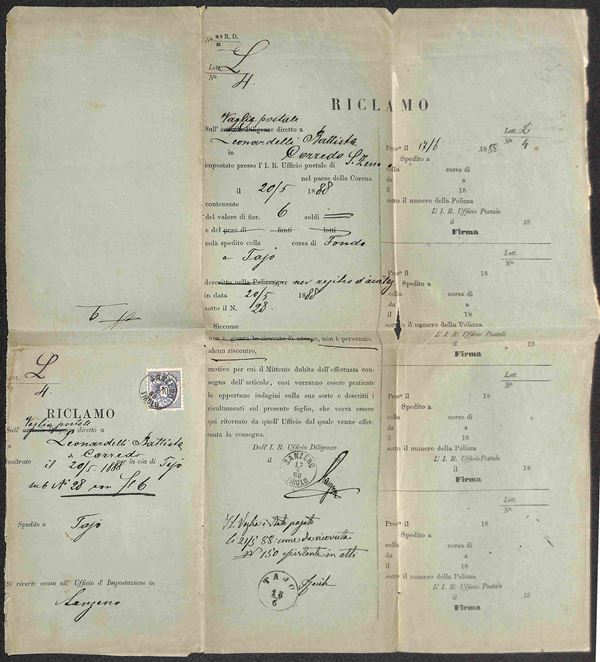 L
4
RICLAMO
Vaglia postale
Sull' diretto a
Leonardelli Battista
a Corredo
inoltrato il 20/5 1888 per la via di Tajo
sub N° 28 con f 6
Spedito a Tajo
Si riverte censo all' Ufficio d' Impostazione in
Sanzeno
6
N° R. D.
Lett. L
N° 4
RICLAMO
Vaglia postale
Sull' articolo Diligenze diretto a
Leonardelli Battista
in Corredo
impostato presso l' I. R. Ufficio postale di S. Zeno
nel paese della Corona
il 20/5 1888
contenente
del valore di fior. 6 soldi
e del peso di funti lotti
colà spedito colla corsa di Fondo
e Tajo
descritto nella nel registro d'
in data 20/5 1888
sotto il N. 28
Siccome
non è giunta la ricevuta di ritorno, non è pervenuto
alcun riscontro,
motivo per cui il Mittente dubita dell' effettuata con-
segna dell' articolo, così vorranno essere praticate
le opportune indagini sulla sua sorte e descritti i
risultamenti sul presente foglio, che verrà essere
qui ritornato da quell' Ufficio dal quale venne effet-
tuata la consegna.
Dall' I. R. Ufficio Diligenze
il
SANZENO
17
6
88
TIROLO
Il Vaglia è stato pagato
li 21/5 88 come da ricevuta
N° 150 esistente in atti
TAJO
18
6
Lett. L
N° 4
Pres° il 17/6 1888
Spedito a
colla corsa di
da a
il 18
sotto il numero della Polizza
L' I. R. Ufficio Postale
il 18
Firma
Lett.
N°
Pres° il 18
Spedito a
colla corsa di
da a
il 18
sotto il numero della Polizza
L' I. R. Ufficio Postale
il 18
Firma
Lett.
N°
Pres° il 18
Spedito a
colla corsa di
da a
il 18
sotto il numero della Polizza
L' I. R. Ufficio Postale
il 18
Firma
Lett.
N°
Pres° il 18
Spedito a
colla corsa di
da a
il 18
sotto il numero della Polizza
L' I. R. Ufficio Postale
il 18
Firma